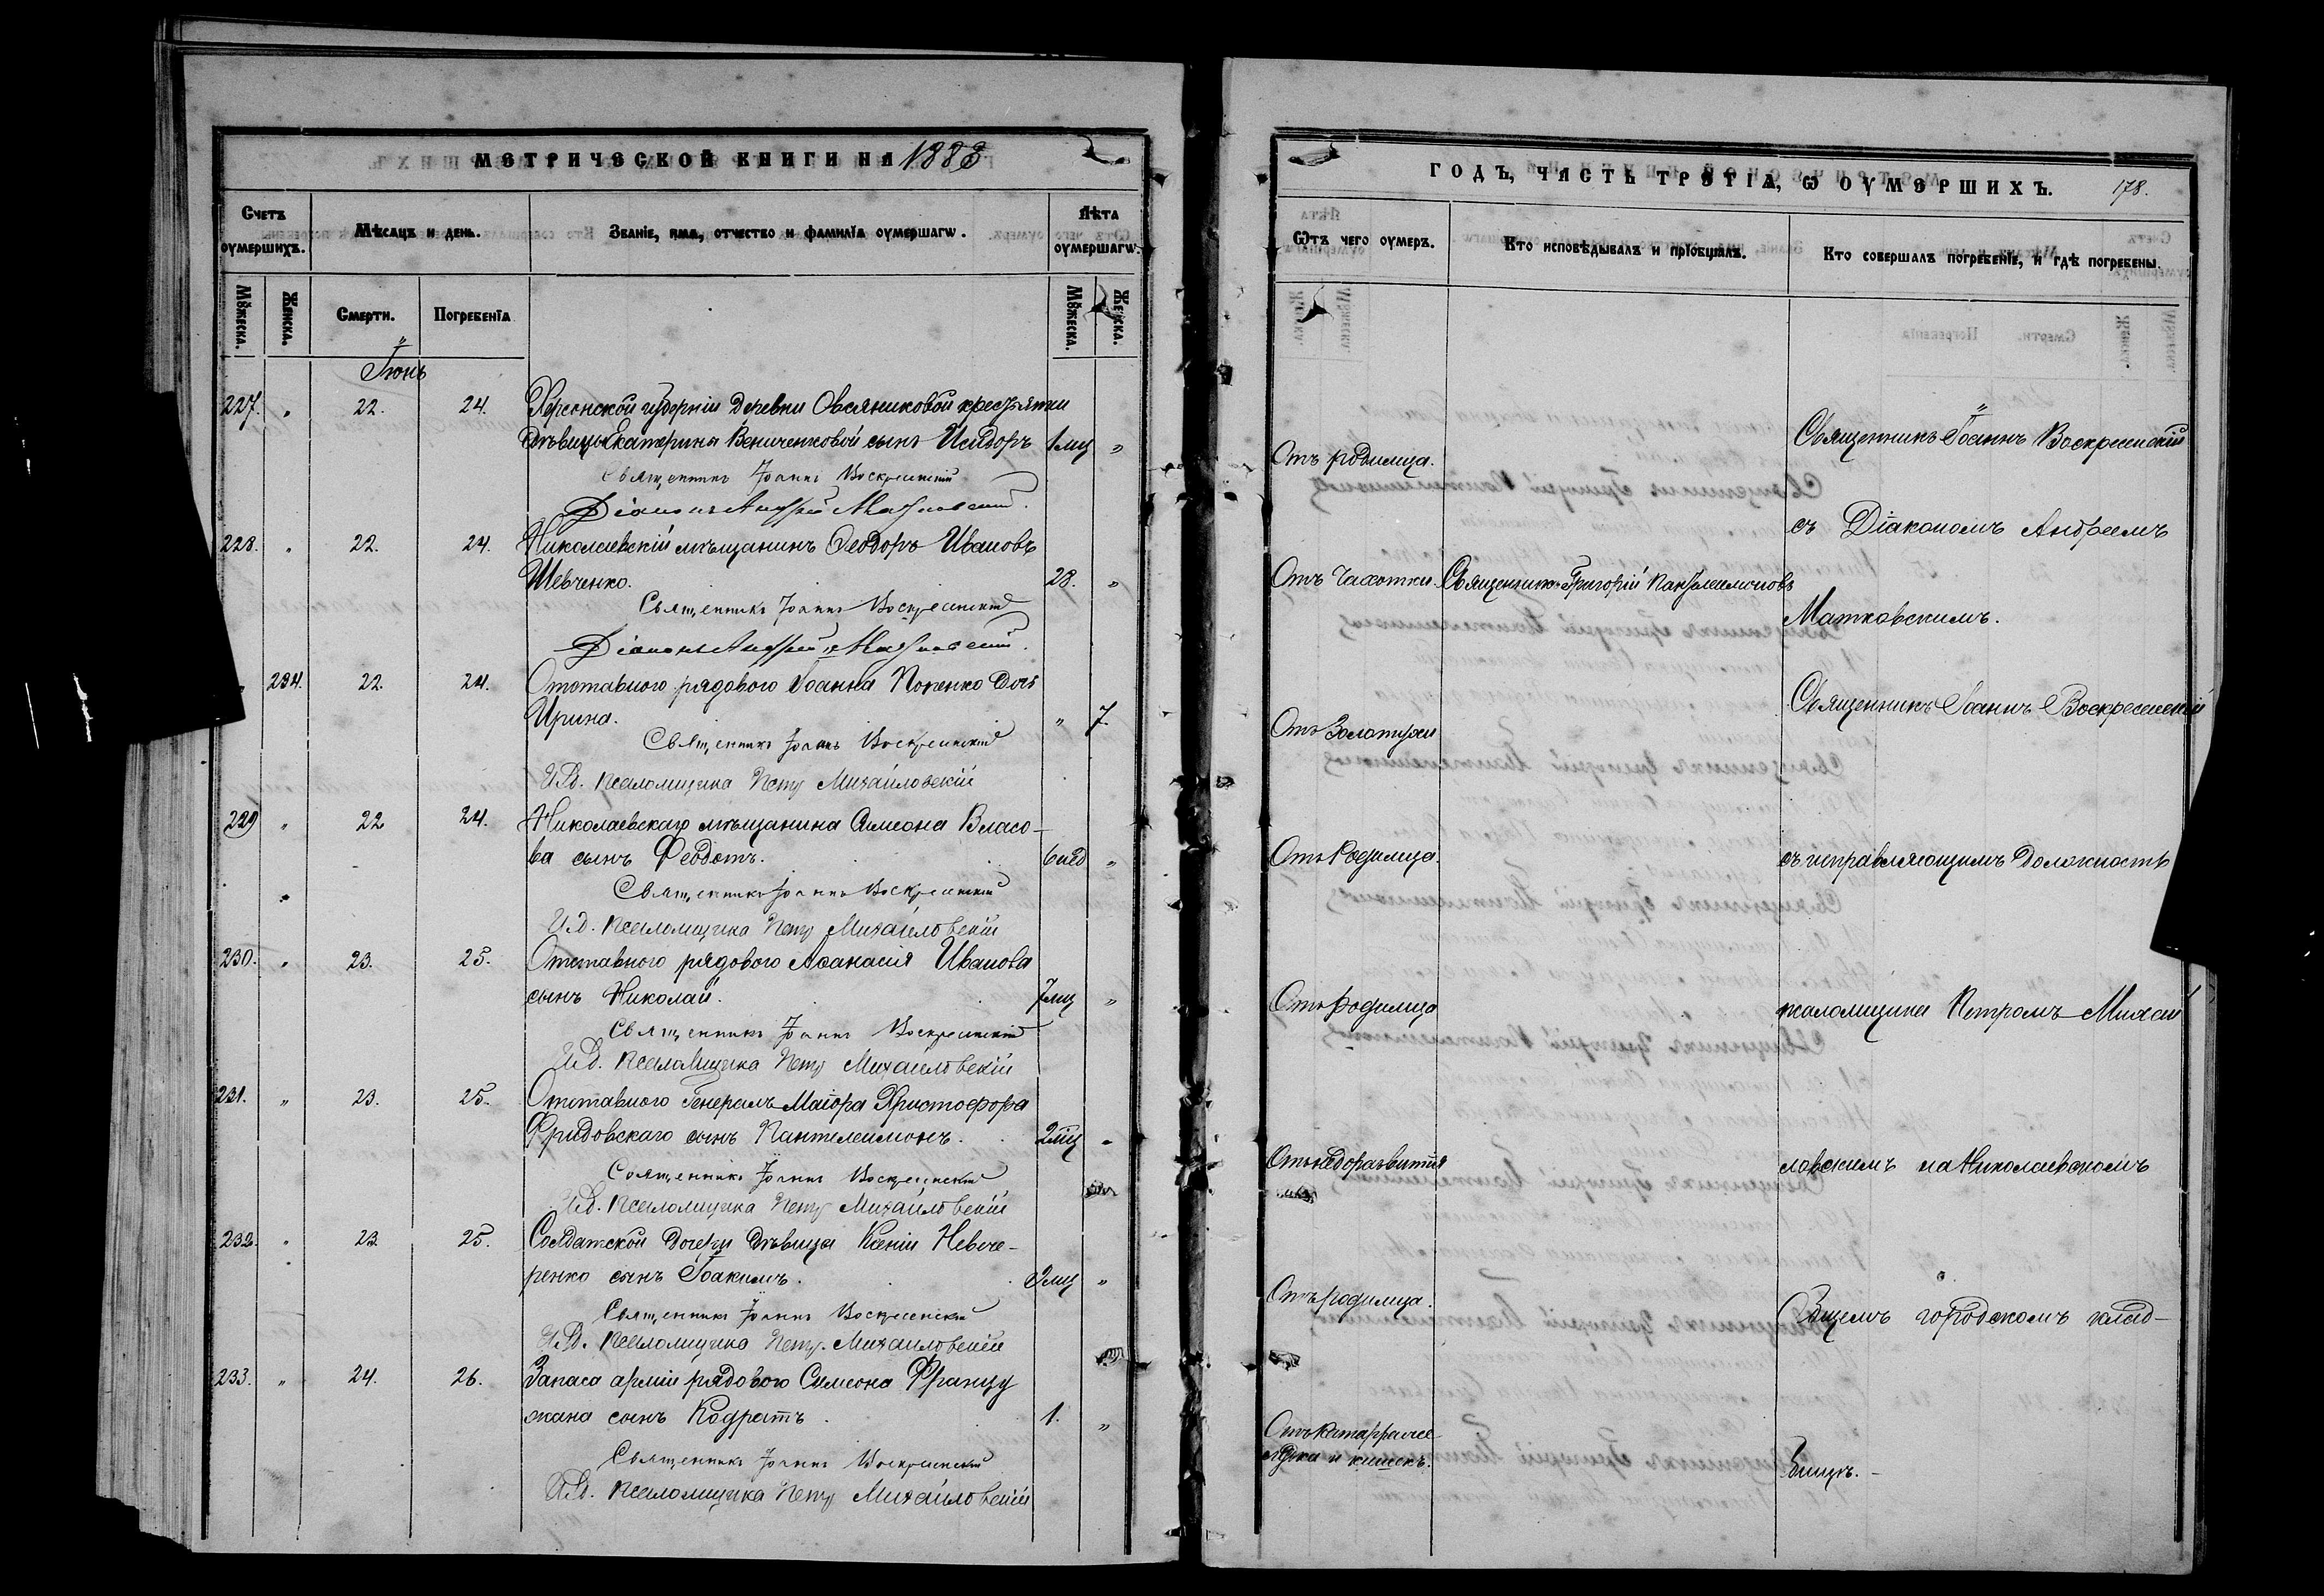 МЕТРИЧЕСКОЙ КНИГИ НА 1883
Счетъ оумершихъ.
Мѣсяцъ и день.
Званіе, имя, отчество и фамилія оумершагѡ.
Лѣта оумершагѡ.
Мꙋжеска.
Женска.
Смерти.
Погребенїа
Мꙋжеска.
Женска.
Іюнь
227. " 22. 24. Херсонской губерніи деревни Овсяниковой крестьянки
дѣвицы Екатерины Вениченковой сынъ Исидоръ 1 мц "
Священникъ Іоаннъ Воскресенскій
Діаконъ Андрей Матковскій.
228. " 22. 24. Николаевскій мѣщанинъ Ѳеодоръ Ивановъ
Шевченко. 28. "
Священникъ Іоаннъ Воскресенскій
Діаконъ Андрей Матковскій.
" 234. 22. 24. Отставного рядового Іоанна Попенко дочь
Ирина. " 7.
Священникъ Іоаннъ Воскресенскій
И.д. псаломщика Петр Михайловскій
229 " 22 24. Николаевскаго мѣщанина Симеона Власо-
ва сынъ Ѳеодотъ. 6 нед "
Священникъ Іоаннъ Воскресенскій
И.д. псаломщика Петр Михайловскій
230. " 23. 25. Отставного рядового Аѳанасія Иванова
сынъ Николай. 7 мц "
Священникъ Іоаннъ Воскресенскій
И.д. псаломщика Петр Михайловскій
231. " 23. 25. Отставного Генералъ Маіора Христофора
сынъ Пантелеимонъ. 2 мц "
Священникъ Іоаннъ Воскресенскій
И.д. псаломщика Петр Михайловскій
232. " 23 25. Солдатской дочери дѣвицы Ксеніи Невече-
ренко сынъ Іоакимъ. 2 мц "
Священникъ Іоаннъ Воскресенскій
И.д. псаломщика Петр Михайловскій
233. " 24. 26. Запаса арміи рядового Симеона Францу
жана сынъ Кодратъ. 1. "
Священникъ Іоаннъ Воскресенскій
И.д. псаломщика Петр Михайловскій
ГОДЪ, ЧАСТЬ ТРЕТІѦ, Ѡ ОУМЕРШИХЪ. 178.
Ѿтъ чего оумеръ.
Кто исповѣдывалъ и прїобщалъ.
Кто совершалъ погребенїе, и гдѣ погребены.
Отъ родимца.
Священникъ Іоаннъ Воскресенскій
съ Діакономъ Андреемъ
Отъ Чахотки. Священникъ Григорій Пантелеимоновъ
Матковскимъ.
Священникъ Іоаннъ Воскресенскій
Отъ Золотухи
Отъ Родимца. съ исправляющимъ должность
Отъ родимца псаломщика Петромъ Михай
Отъ недоразвитія ловскимъ на Николаевскомъ
Отъ родимца. Общемъ городскомъ клад-
Отъ катарра же-
лудка и кишекъ.
бищѣ.-